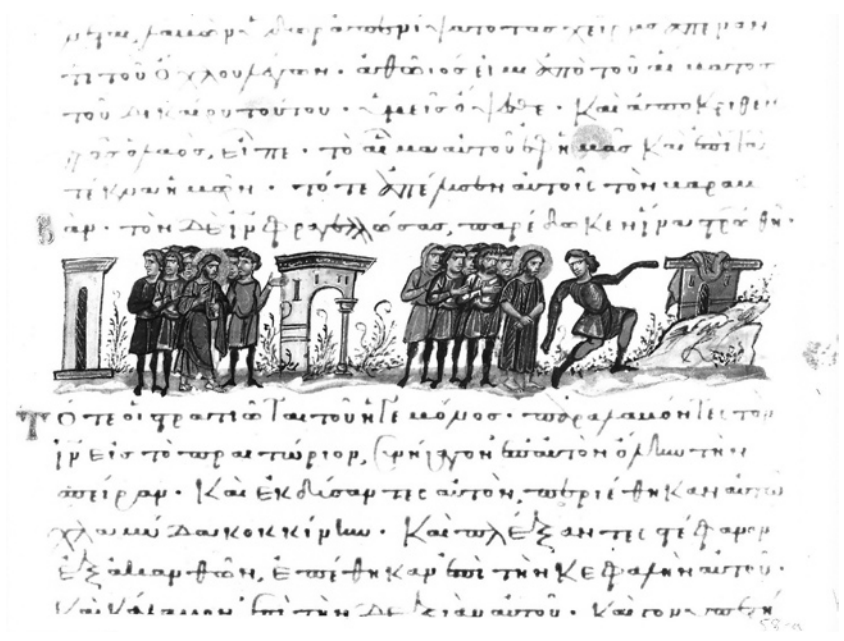 λαβὼν ὕδωρ ἀπενίψατο τὰς χεῖρας ἀπέναν
τι τοῦ ὄχλου λέγων· ἀθῶός εἰμι ἀπὸ τοῦ αἵματος
τοῦ δικαίου τούτου· ὑμεῖς ὄψεσθε· Καὶ ἀποκριθεὶς
πᾶς ὁ λαὸς, εἶπε· τὸ αἷμα αὐτοῦ ἐφ' ἡμᾶς καὶ ἐπὶ τὰ
τέκνα ἡμῶν· τότε ἀπέλυσεν αὐτοῖς τὸν βαραβ
βάν· τὸν δὲ ἰν φραγελλώσας, παρέδωκεν ἵνα στρωθῆ·
Τότε οἱ στρατιῶται τοῦ ἡγεμόνος· παραλαβόντες τὸν
ἰν εἰς τὸ πραιτώριον, συνήγαγον ἐπ' αὐτὸν ὅλην τὴν
σπεῖραν· Καὶ ἐκδύσαντες αὐτὸν, περιέθηκαν αὐτῶ
χλαμύδα κοκκίνην· Καὶ πλέξαντες στέφανον
ἐξ ἀκανθῶν, ἐπέθηκαν ἐπὶ τὴν κεφαλὴν αὐτοῦ·
Καὶ κάλαμον ἐπὶ τὴν δεξιὰν αὐτοῦ· Καὶ